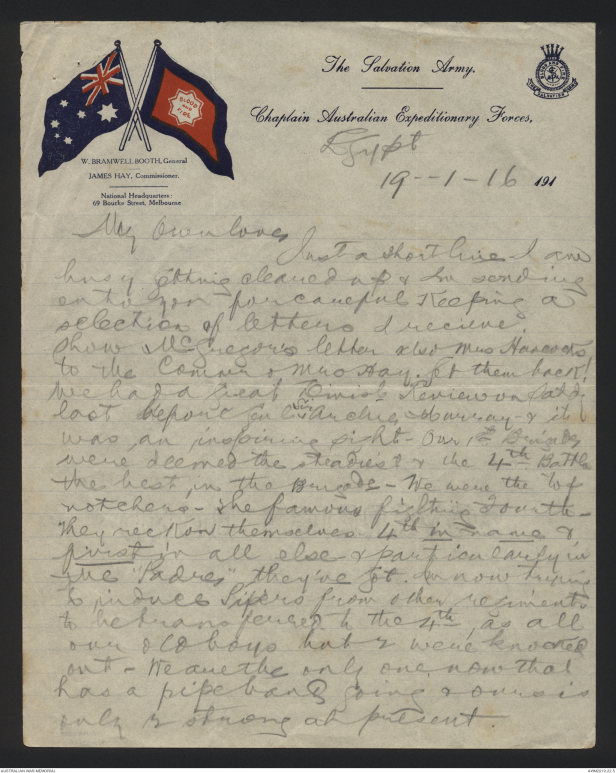 The Salvation Army.
Chaplain Australian Expeditionary Forces,
BLOOD
AND
FIRE
W. BRAMWELL BOOTH, General
JAMES HAY, Commissioner.
National Headquarters:
69 Bourke Street, Melbourne
Egypt
19--1-16 191
My Own loves
Just a short line - I am
busy getting cleared up & Im sending
onto you for careful Keeping a
selection of letters I recieve.
Show McGregor's letter also Mrs Hancocks
to the Commr & Mrs Hay. get them back!
We had a great Divis'l Review on Satdy
last before Gen Sir Archie Murray & it
was an inspiring sight - Our 1st Brigade
were deemed the steadiest & the 4th Battln
the best in the Brigade - We were the top
notchers - The famous fighting Fourth -
They reckon themselves 4th in name &
first in all else & particularly in
the "Padre" they've got. Im now trying
to induce Pifers from other regiments
to be transferred to the 4th, as all
our old boys but 2 were knocked
out - We are the only one now that
has a pipe band going & ours is
only 2 strong at present.
AUSTRALIAN WAR MEMORIAL